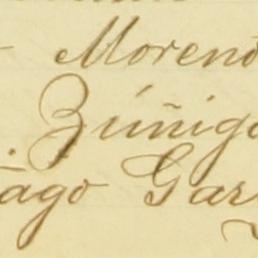 Moreno
Zúñiga
ago Gar